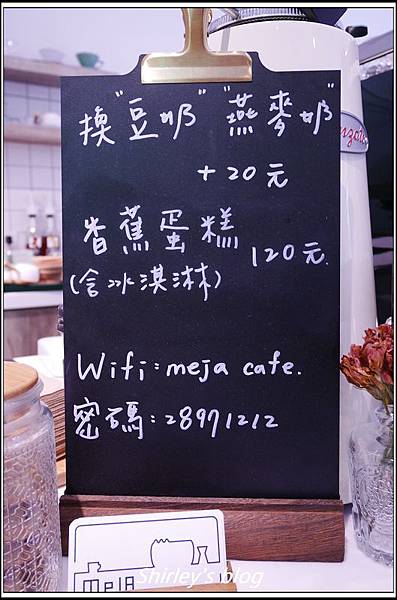 換"豆奶""燕麥奶"
+20元
香蕉蛋糕 120元.
(含冰淇淋)
Wifi:meja cafe.
密碼:28971212
meja
Shirley's blog